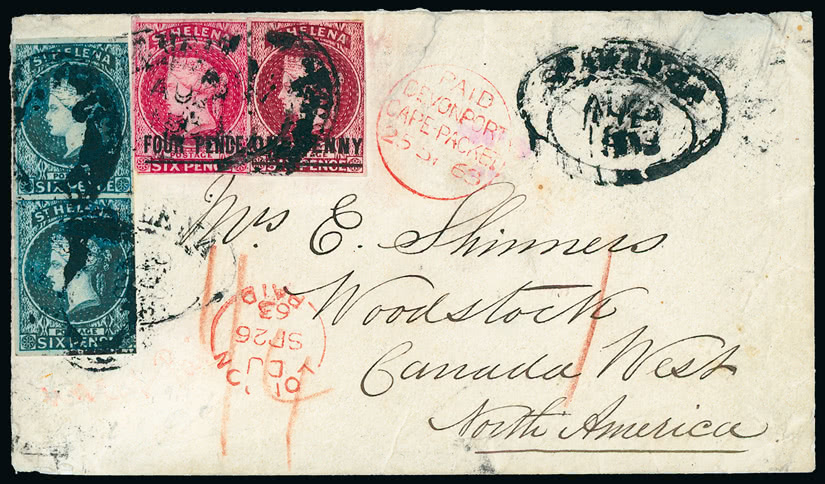 ST HELENA
POSTAGE
SIX PENCE
ST HELENA
POSTAGE
SIX PENCE
ST HELENA
FOUR PENCE
POSTAGE
SIX PENCE
HELENA
ONE PENNY
POSTAGE
SIX PENCE
PAID
DEVONPORT
CAPE-PACKET
25 SP 63
Mrs E. Shinners
Woodstock
Canada West
North America
LONDON
DJ
SP 26
63
PAID
1